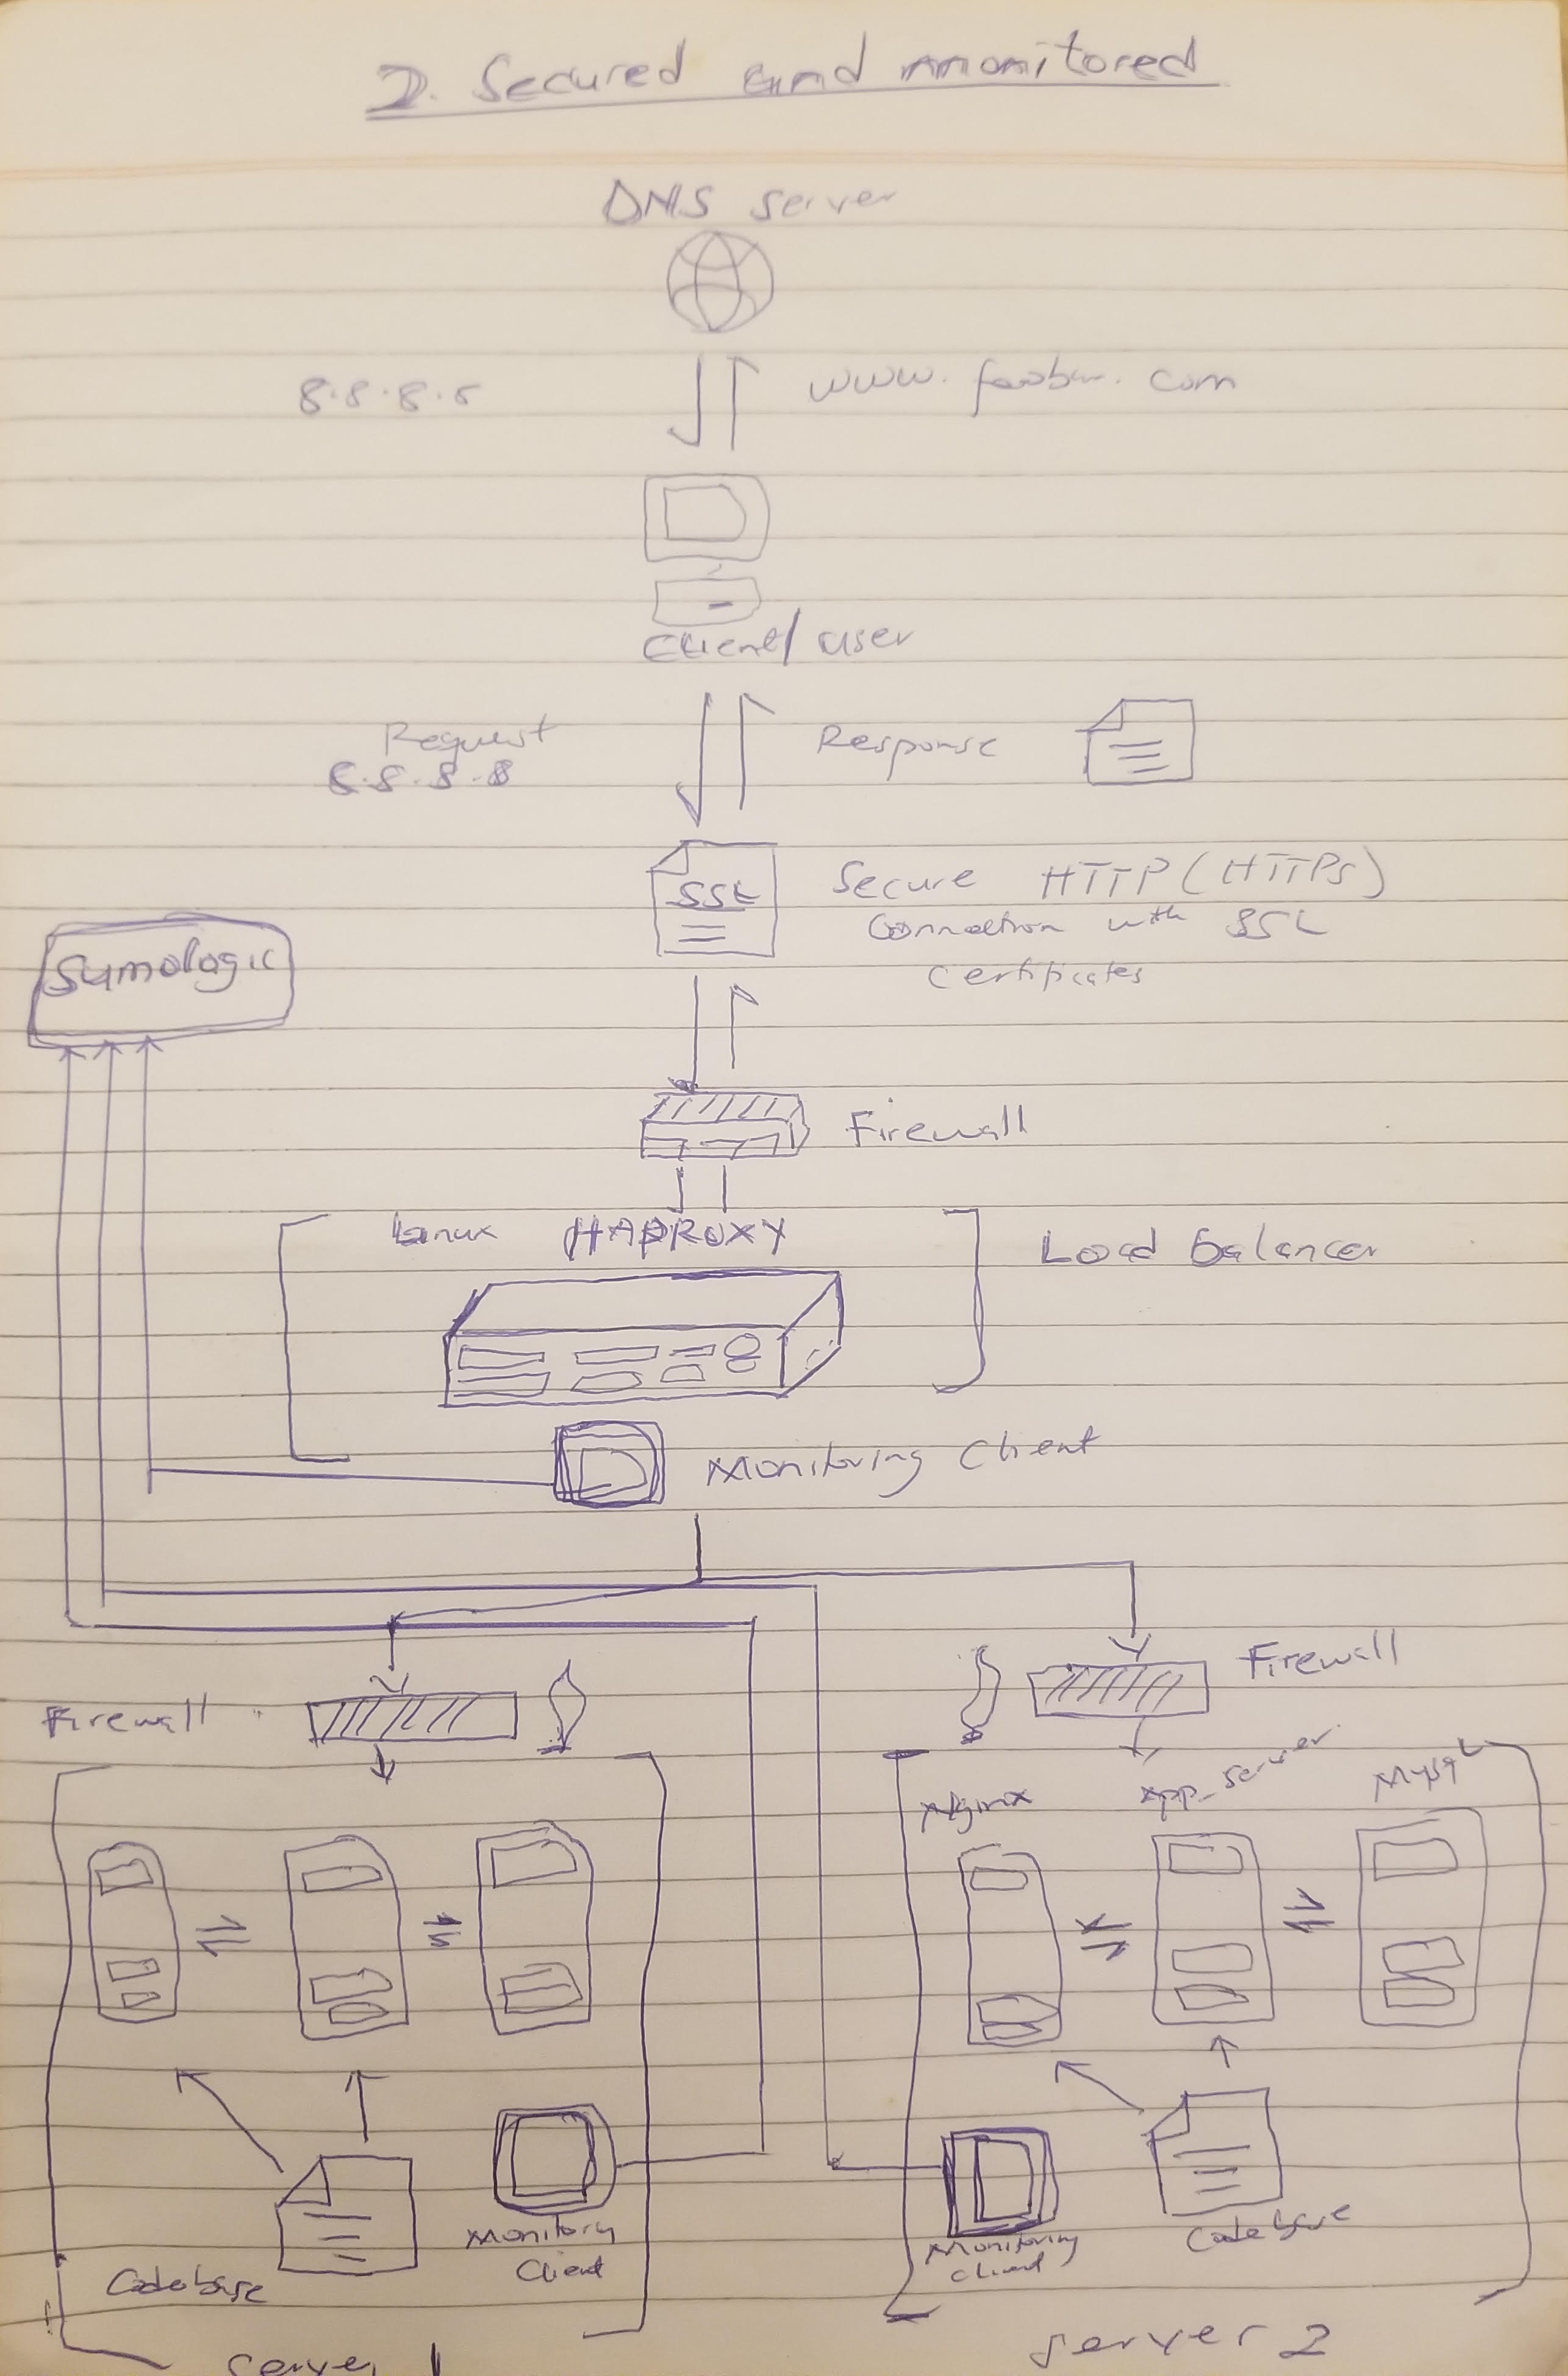 2. Secured and monitored
DNS server
8.8.8.8
www.foobar.com
Client/user
Request
8.8.8.8
Response
SSL
Secure HTTP (HTTPS)
Connection with SSL
Certificates
Sumologic
Firewall
Linux HAPROXY
Load balancer
Monitoring Client
Firewall
Firewall
Nginx
App_server
Mysql
Monitoring
Client
Codebase
Monitoring
Client
Codebase
server 1
server 2